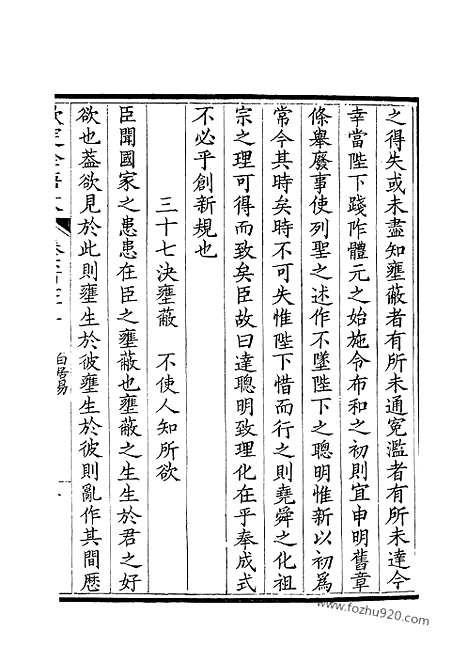 之得失或未盡知壅蔽者有所未通寃濫者有所未達今
幸當陛下踐阼體元之始施令布和之初則宜申明舊章
條舉廢事使列聖之述作不墜陛下之聰明惟新以初爲
常今其時矣時不可失惟陛下惜而行之則堯舜之化祖
宗之理可得而致矣臣故曰達聰明致理化在乎奉成式
不必乎創新規也
三十七決壅蔽　不使人知所欲
臣聞國家之患患在臣之壅蔽也壅蔽之生生於君之好
欲也葢欲見於此則壅生於彼壅生於彼則亂作其間歴
白居易
www.fozhu920.com